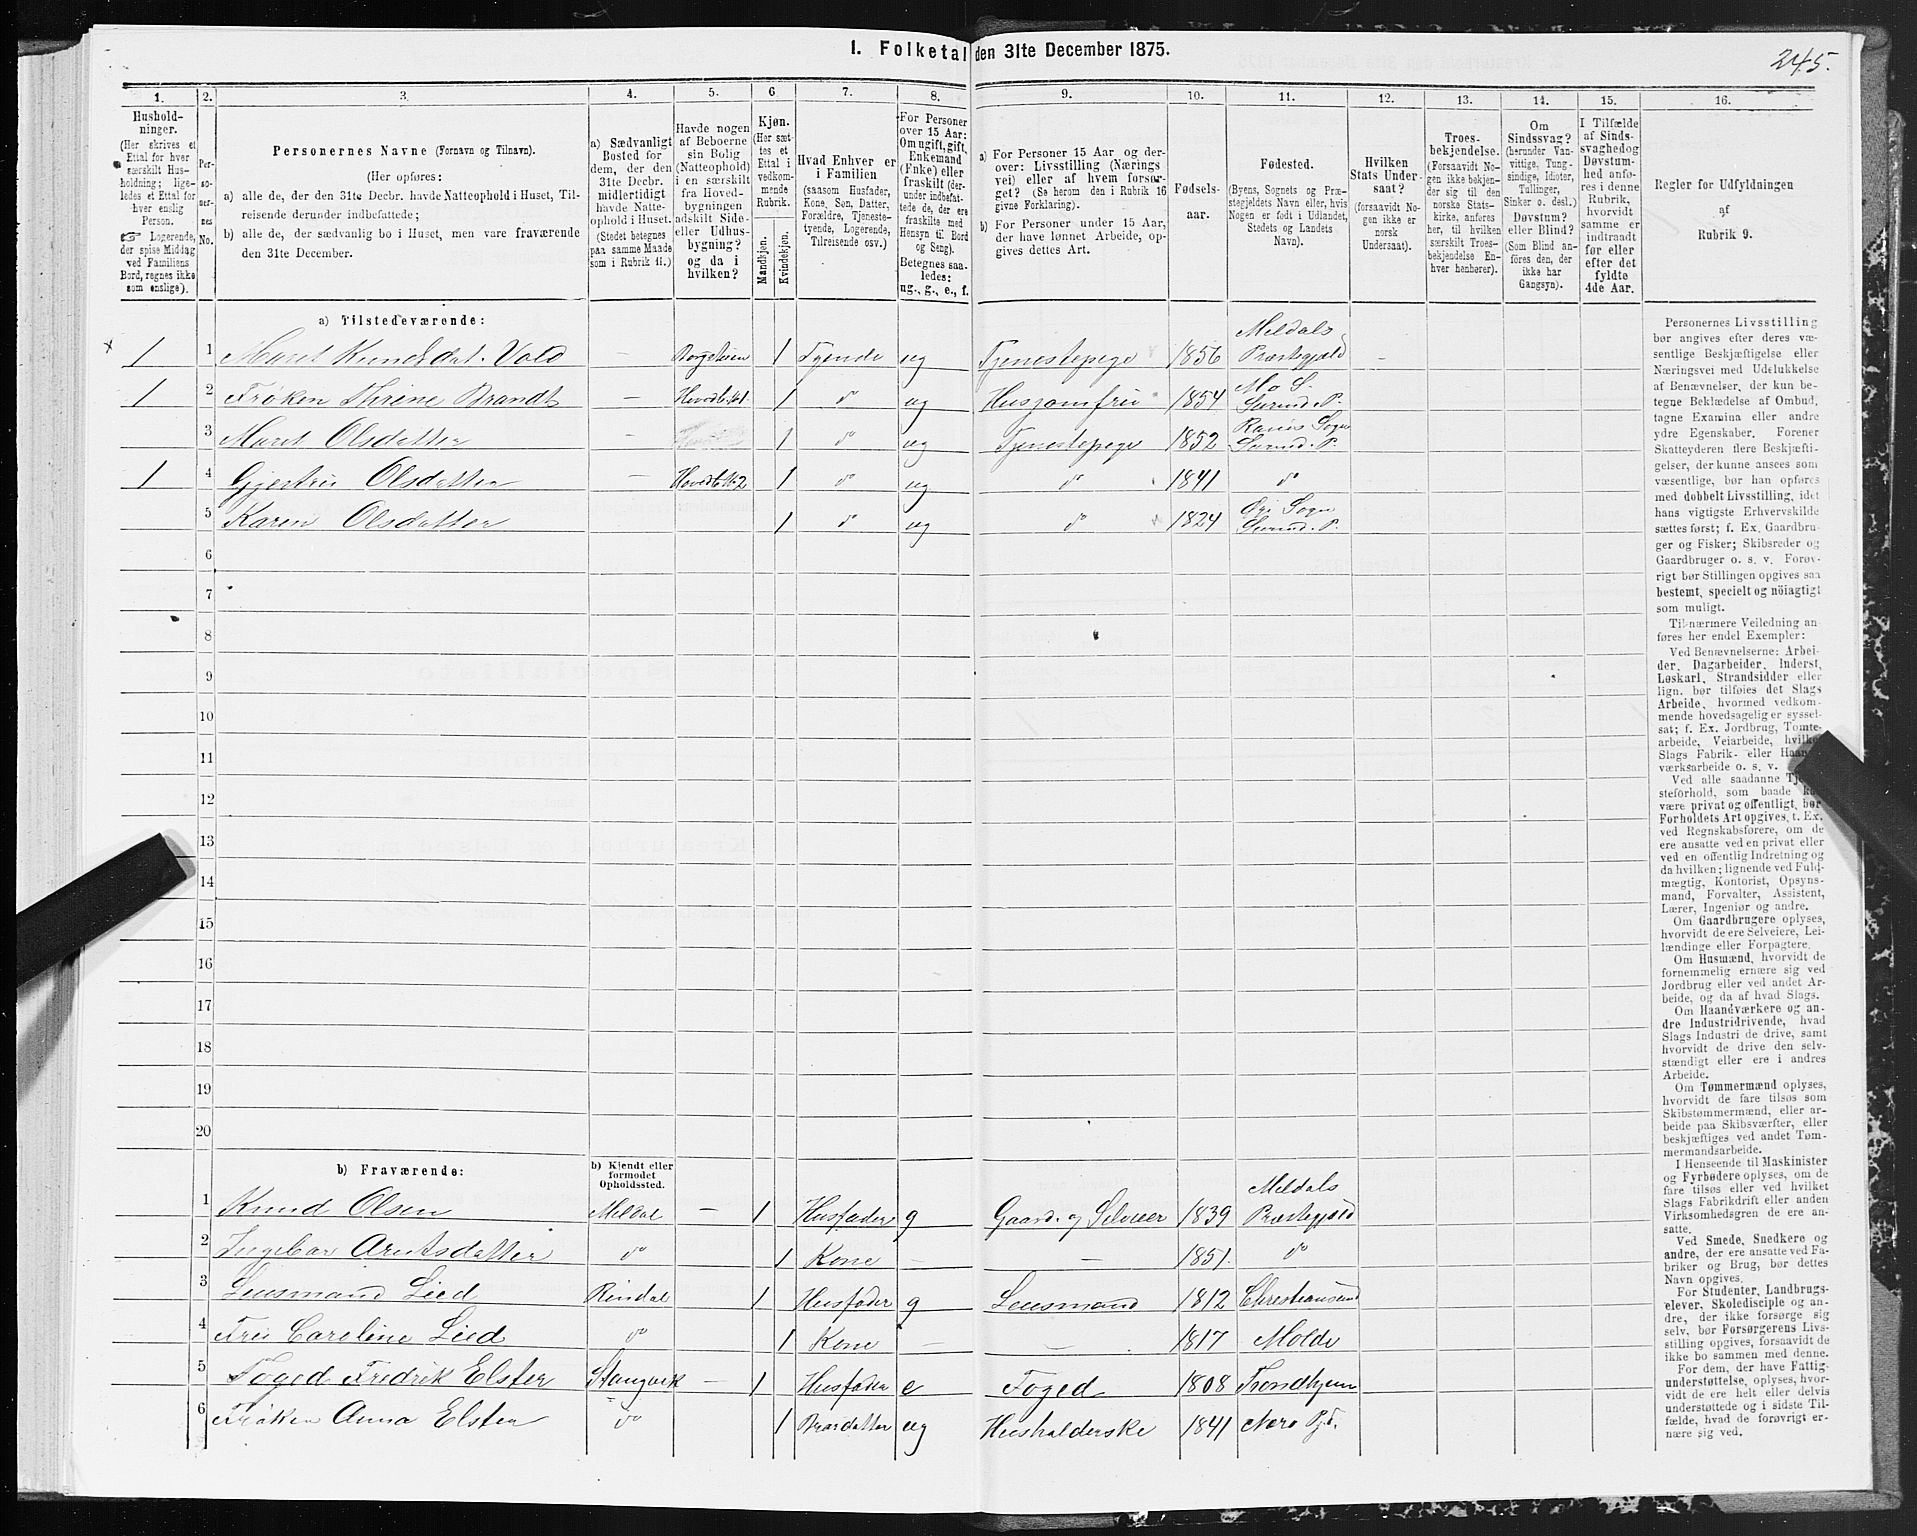 1. Folketal den 31te December 1875.
245.
1.
2.
3.
4.
5.
6
7.
8.
9.
10.
11.
12.
13.
14.
15.
16.
Hushold-
ninger.
(Her skrives et
Ettal for hver
særskilt Hus-
holdning; lige-
ledes et Ettal for
hver enslig
Person.
☞ Logerende,
der spise Middag
ved Familiens
Bord, regnes ikke
som enslige).
Per-
so-
ner-
nes
No.
Personernes Navne (Fornavn og Tilnavn).
(Her opføres:
a) alle de, der den 31te Decbr. havde Natteophold i Huset, Til-
reisende derunder indbefattede;
b) alle de, der sædvanlig bo i Huset, men vare fraværende
den 31te December.
a) Sædvanligt
Bosted for
dem, der den
31te Decbr.
midlertidigt
havde Natte-
ophold i Huset.
(Stedet betegnes
paa samme Maade
som i Rubrik 11.)
Havde nogen
af Beboerne
sin Bolig
(Natteophold)
i en særskilt
fra Hoved-
bygningen
adskilt Side-
eller Udhus-
bygning?
og da i
hvilken?
Kjøn.
(Her sæt-
tes et
Ettal i
vedkom-
mende
Rubrik.
Mandkjøn.
Kvindekjøn.
Hvad Enhver er
i Familien
(saasom Husfader,
Kone, Søn, Datter,
Forældre, Tjeneste-
tyende, Logerende,
Tilreisende osv.)
For Personer
over 15 Aar:
Om ugift, gift,
Enkemand
(Enke) eller
fraskilt (der-
under indbefat-
tede de, der ere
fraskilte med
Hensyn til Bord
og Seng).
Betegnes saa-
ledes:
ug., g., e., f.
a) For Personer 15 Aar og der-
over: Livsstilling (Nærings
vei) eller af hvem forsør-
get? (Se herom den i Rubrik 16
givne Forklaring).
b) For Personer under 15 Aar,
der have lønnet Arbeide, op-
gives dettes Art.
Fødsels-
aar.
Fødested.
(Byens, Sognets og Præ-
stegjeldets Navn eller, hvis
Nogen er født i Udlandet,
Stedets og Landets
Navn).
Hvilken
Stats Under-
saat?
(forsaavidt No-
gen ikke er
norsk
Undersaat).
Troes-
bekjendelse.
(Forsaavidt No-
gen ikke bekjen-
der sig til den
norske Stats-
kirke, anføres
her, til hvilken
særskilt Troes-
bekjendelse En-
hver henhører).
Om
Sindssvag?
(herunder Van-
vittige, Tung-
sindige, Idioter,
Tullinger,
Sinker o. desl.)
Døvstum?
eller Blind?
(Som Blind an-
føres den, der
ikke har
Gangsyn).
I Tilfælde
af Sinds-
svaghed og
Døvstum-
hed anfø-
res i denne
Rubrik,
hvorvidt
samme er
indtraadt
før eller
efter det
fyldte
4de Aar.
Regler for Udfyldningen
af
Rubrik 9.
a) Tilstedeværende:
× 1 1 Maret Knudsdat. Vold — Borgstuen 1 Tyende ug Tjenestepige 1856 Meldals Præstegjeld -
1 2 Frøken Thrine Brandt — Hovedb. N1 1 do ug Husjomfru 1854 Mo S. Surend. P.
3 Maret Olsdatter - 1 do ug Tjenestepige 1852 Ranes Sogn Surend. P.
1 4 Gjertru Olsdatter — Hovedb. N2 1 do ug do 1841 do
5 Karen Olsdatter 1 do ug do 1824 Øie Sogn Surend. P.
6
7
8
9
10
11
12
13
14
15
16
17
18
19
20
b) Fraværende:
b) Kjendt eller
formodet
Opholdssted.
1 Knud Olsen Meldal — 1 Husfader g Gaard. og Selveier 1839 Meldals Præstegjeld
2 Ingebor Arntsdatter do 1 Kone — — 1851. do
3 Lensmand Lied Rindal 1 Husfader g Lensmand 1812 Christiansund
4 Fru Caroline Lied do 1 Kone — — 1817 Molde
5 Foged Fredrik Elster Stangvik — 1 Husfader e Foged 1808 Trondhjem
6 Frøken Anna Elster do 1 Brordatter ug Husholderske 1841 Nero Pgd.
Personernes Livsstilling
bør angives efter deres væ-
sentlige Beskjæftigelse eller
Næringsvei med Udelukkelse
af Benævnelser, der kun be-
tegne Beklædelse af Ombud,
tagne Examina eller andre
ydre Egenskaber. Forener
Skatteyderen flere Beskjæfti-
gelser, der kunne ansees som
væsentlige, bør han opføres
med dobbelt Livsstilling, idet
hans vigtigste Erhvervskilde
sættes først; f. Ex. Gaardbru-
ger og Fisker; Skibsreder og
Gaardbruger o. s. v. Forøv-
rigt bør Stillingen opgives saa
bestemt, specielt og nöiagtigt
som muligt.
Til nærmere Veiledning an-
føres her endel Exempler:
Ved Benævnelserne: Arbei-
der, Dagarbeider, Inderst,
Løskarl, Strandsidder eller
lign. bør tilføies det Slags
Arbeide, hvormed vedkom-
mende hovedsagelig er syssel-
sat; f. Ex. Jordbrug, Tomte-
arbeide, Veiarbeide, hvilket
Slags Fabrik- eller Haand-
værksarbeide o. s. v.
Ved alle saadanne Tjene-
steforhold, som baade kan
være privat og offentligt, bør
Forholdets Art opgives, t. Ex.
ved Regnskabsførere, om de
ere ansatte ved en privat eller
ved en offentlig Indretning og
da hvilken; lignende ved Fuld-
mægtig, Kontorist, Opsyns-
mand, Forvalter, Assistent,
Lærer, Ingeniør og andre.
Om Gaardbrugere oplyses,
hvorvidt de ere Selveiere, Lei-
lændinge eller Forpagtere.
Om Husmænd, hvorvidt de
fornemmelig ernære sig ved
Jordbrug eller ved andet Ar-
beide, og da af hvad Slags.
Om Haandværkere og an-
dre Industridrivende, hvad
Slags Industri de drive, samt
hvorvidt de drive den selv-
stændigt eller ere i andres
Arbeide.
Om Tømmermænd oplyses,
hvorvidt de fare tilsøs som
Skibstømmermænd, eller ar-
beide paa Skibsværfter, eller
beskjæftiges ved andet Tøm-
mermandsarbeide.
I Henseende til Maskinister
og Fyrbødere oplyses, om de
fare tilsøs eller ved hvilket
Slags Fabrikdrift eller anden
Virksomhedsgren de ere an-
satte.
Ved Smede, Snedkere og
andre, der ere ansatte ved Fa-
briker og Brug, bør dettes
Navn opgives.
For Studenter, Landbrugs-
elever, Skoledisciple og an-
dre, der ikke forsørge sig
selv, bør Forsørgerens Livs-
stilling opgives, forsaavidt de
ikke bo sammen med denne.
For dem, der have Fattig-
understøttelse, oplyses, hvor-
vidt de ere helt eller delvis
understøttede og i sidste Til-
fælde, hvad de forøvrigt er-
nære sig ved.